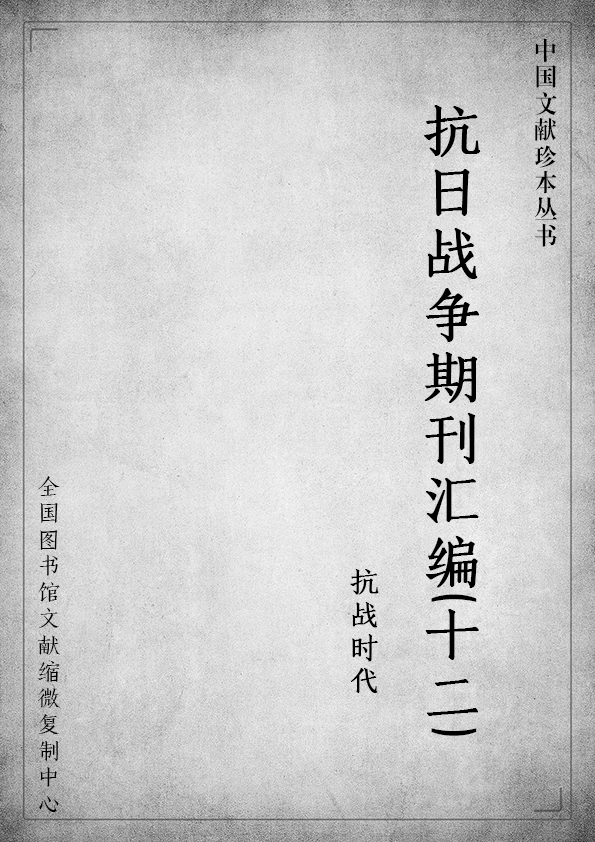 中国文献珍本丛书
抗日战争期刊汇编(十二)
抗战时代
全国图书馆文献缩微复制中心